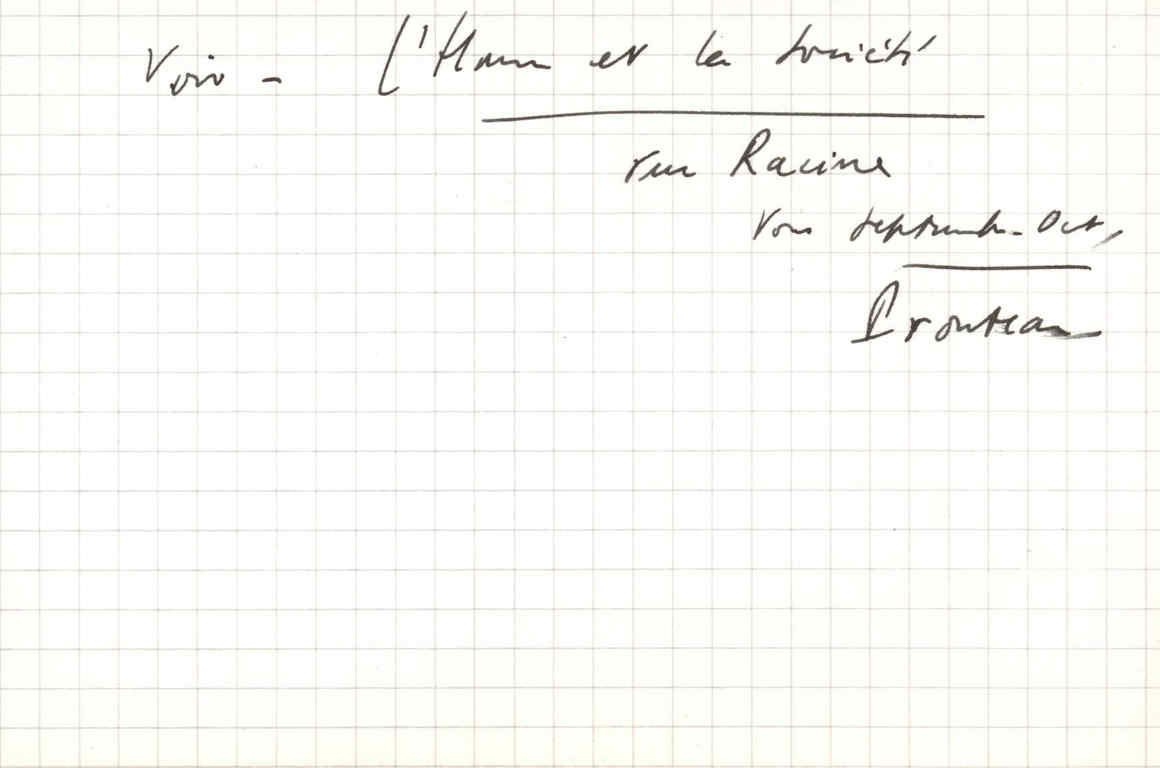 Voir - L'Homme et la Société
rue Racine
Vers septembre-Oct,
Pronteau